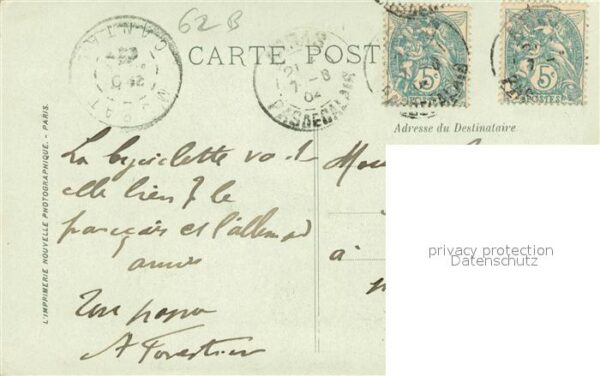 62 B
CARTE POST
ARRAS
PAS DE CALAIS
5c
5c
POSTES
MURAT
CANTAL
Adresse du Destinataire
La byciclette va t
elle bien ? le
français et l'allemand
aussi
Ton papa
A Forestier
à
L'IMPRIMERIE NOUVELLE PHOTOGRAPHIQUE. - PARIS.
privacy protection
Datenschutz